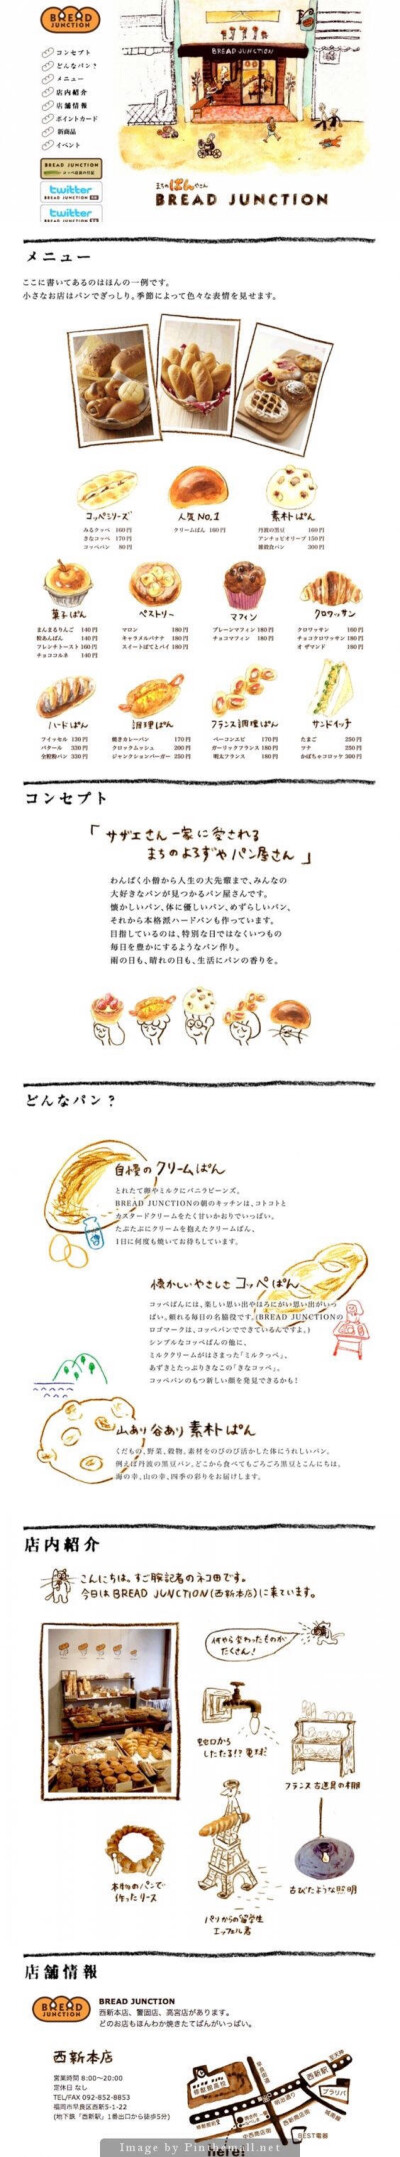 BREAD
JUNCTION
コンセプト
どんなパン？
メニュー
店内紹介
店舗情報
ポイントカード
新商品
イベント
BREAD JUNCTION
twitter
BREAD JUNCTION
twitter
BREAD JUNCTION
まちのぱんやさん
BREAD JUNCTION
メニュー
ここに書いてあるのはほんの一例です。
小さなお店はパンでぎっしり。季節によって色々な表情を見せます。
コッペシリーズ
みるクッペ 160円
きなコッペ 170円
コッペパン 80円
人気No.1
クリームぱん 160円
素朴ぱん
丹波の黒豆 160円
アンチョビオリーブ 150円
雑穀食パン 300円
菓子ぱん
まんまるりんご 140円
粒あんぱん 140円
フレンチトースト 160円
チョココルネ 140円
ペストリー
マロン 180円
キャラメルバナナ 180円
スイートぽてとパイ 180円
マフィン
プレーンマフィン 180円
チョコマフィン 180円
クロワッサン
クロワッサン 160円
チョコクロワッサン 180円
オ ザマンド 160円
ハードぱん
フィイッセル 130円
バタール 330円
全粒粉パン 330円
調理ぱん
焼きカレーパン 170円
クロックムッシュ 200円
ジャンクションバーガー 250円
フランス調理ぱん
ベーコンエピ 170円
ガーリックフランス 180円
明太フランス 180円
サンドイッチ
たまご 250円
ツナ 250円
かぼちゃコロッケ 300円
コンセプト
「サザエさん一家に愛される
まちのよろずやパン屋さん」
わんぱく小僧から人生の大先輩まで、みんなの
大好きなパンが見つかるパン屋さんです。
懐かしいパン、体に優しいパン、めずらしいパン、
それから本格派ハードパンも作っています。
目指しているのは、特別な日ではなくいつもの
毎日を豊かにするようなパン作り。
雨の日も、晴れの日も、生活にパンの香りを。
どんなパン？
自慢のクリームぱん
とれたて卵やミルクにバニラビーンズ。
BREAD JUNCTIONの朝のキッチンは、コトコトと
カスタードクリームをたく甘いかおりでいっぱい。
たぷたぷにクリームを抱えたクリームぱん、
1日に何度も焼いてお待ちしています。
懐かしいやさしさ コッペぱん
コッペぱんには、楽しい思い出やほろにがい思い出がいっ
ぱい。頼れる毎日の名脇役です。(BREAD JUNCTIONの
ロゴマークは、コッペパンでできているんですよ。)
シンプルなコッペぱんの他に、
ミルククリームがはさまった「ミルクっペ」、
あずきとたっぷりきなこの「きなコッペ」。
コッペパンのもつ新しい顔を発見できるかも！
山あり谷あり 素朴ぱん
くだもの、野菜、穀物。素材をのびのび活かした体にうれしいパン。
例えば丹波の黒豆パン。どこから食べてもごろごろ黒豆とこんにちは。
海の幸、山の幸、四季の彩りをお届けします。
店内紹介
こんにちは。すご腕記者のネコ田です。
今日はBREAD JUNCTION(西新本店)に来ています。
何やら変わったものが
たくさん！
蛇口から
したたる!? 電球
フランス古道具の本棚
本物のパンで
作ったリース
パリからの留学生
エッフェル君
古びたような照明
店舗情報
BREAD
JUNCTION
BREAD JUNCTION
西新本店、警固店、高宮店があります。
どのお店もほんわか焼きたてぱんがいっぱい。
西新本店
営業時間 8:00～20:00
定休日 なし
TEL/FAX 092-852-8853
福岡市早良区西新5-1-22
(地下鉄「西新駅」1番出口から徒歩5分)
修猷館高校
明治通り
西新駅
プラリバ
西新商店街
中西商店街
BEST電器
here!
Image by Pinthemall.net